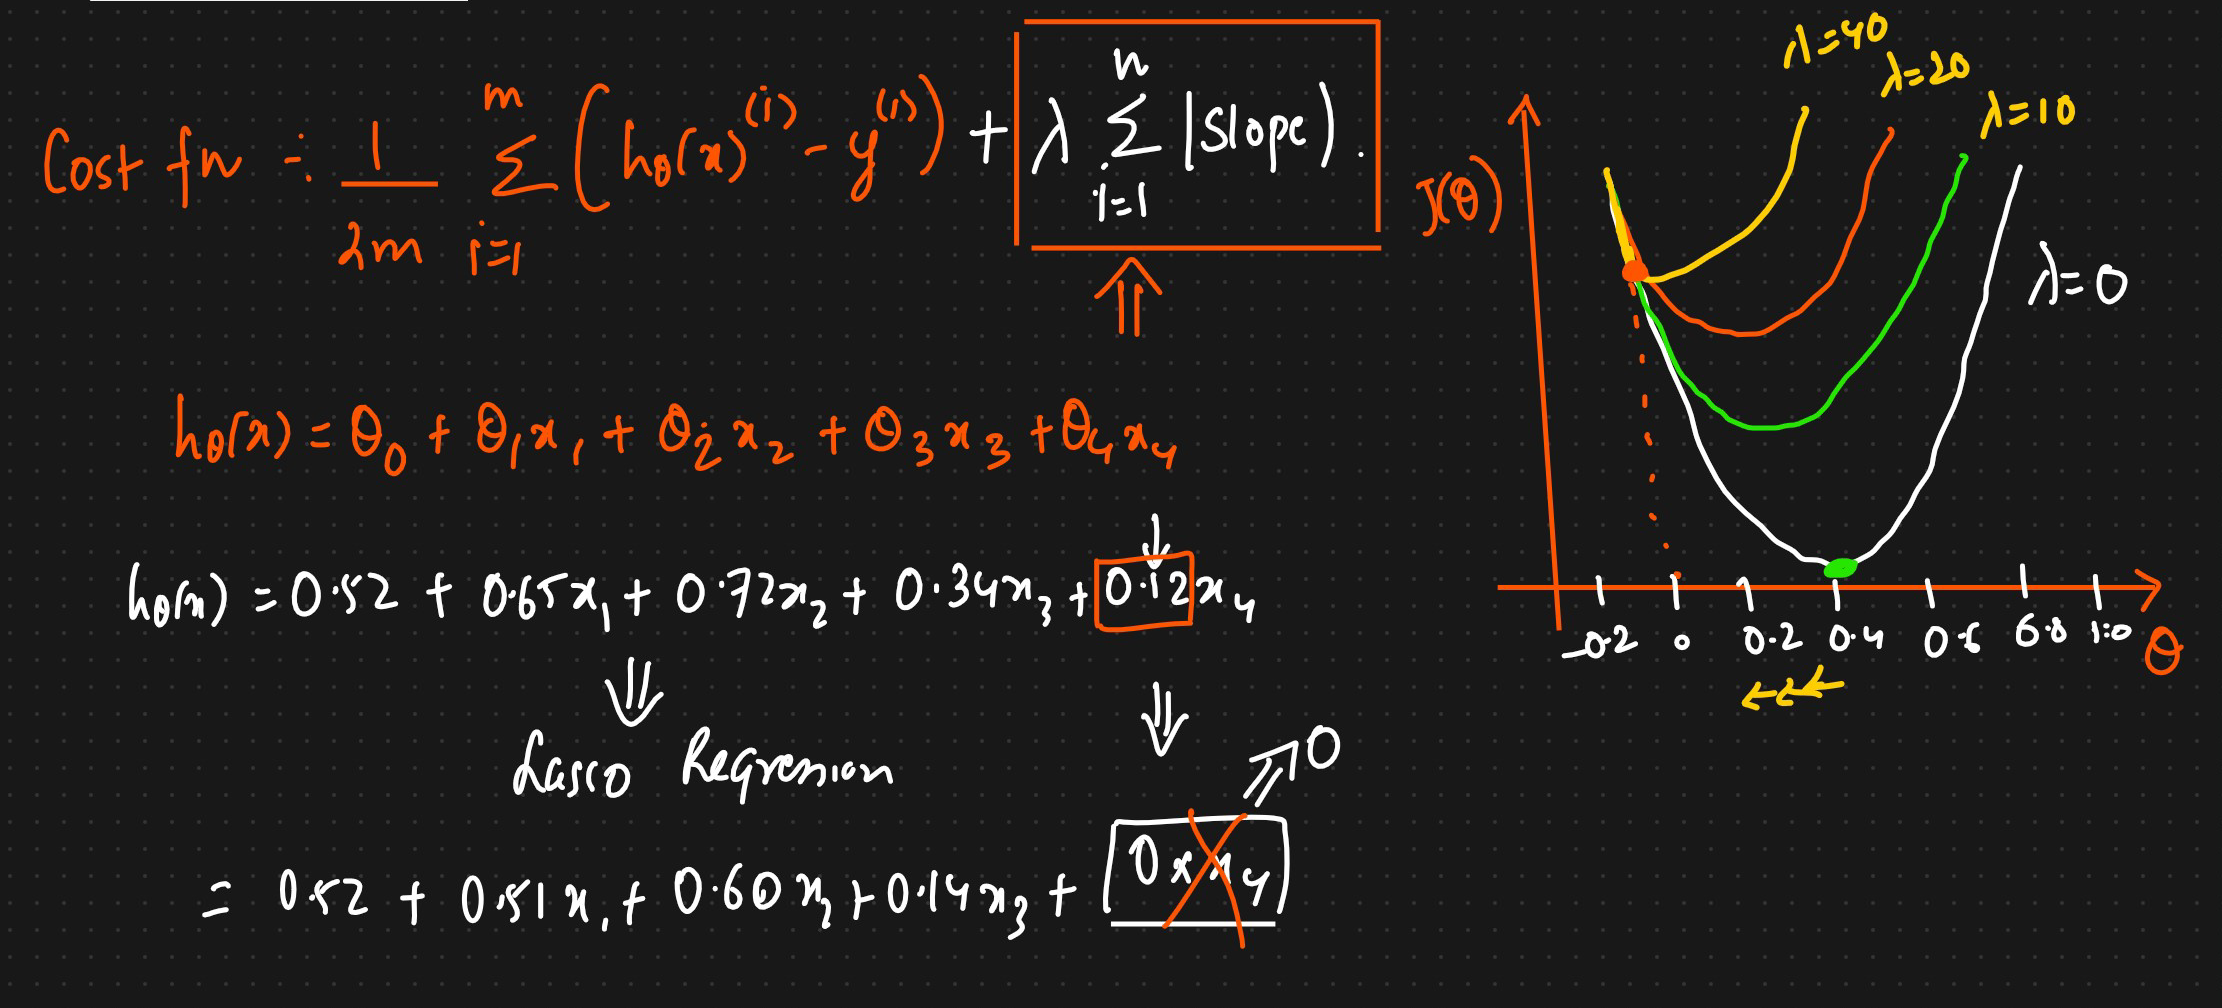 Cost fn ÷ 1/2m m Σ i=1 (hθ(x)^(i) - y^(i)) + λ n Σ i=1 |Slope).
hθ(x) = θ0 + θ1x1 + θ2x2 + θ3x3 + θ4x4
hθ(x) = 0.52 + 0.65x1 + 0.72x2 + 0.34x3 + 0.12x4
Lasso Regression
0
= 0.52 + 0.51x1 + 0.60x2 + 0.14x3 + 0xx4
λ=40
λ=20
λ=10
J(θ)
λ=0
-0.2 0 0.2 0.4 0.6 0.8 1.0 θ